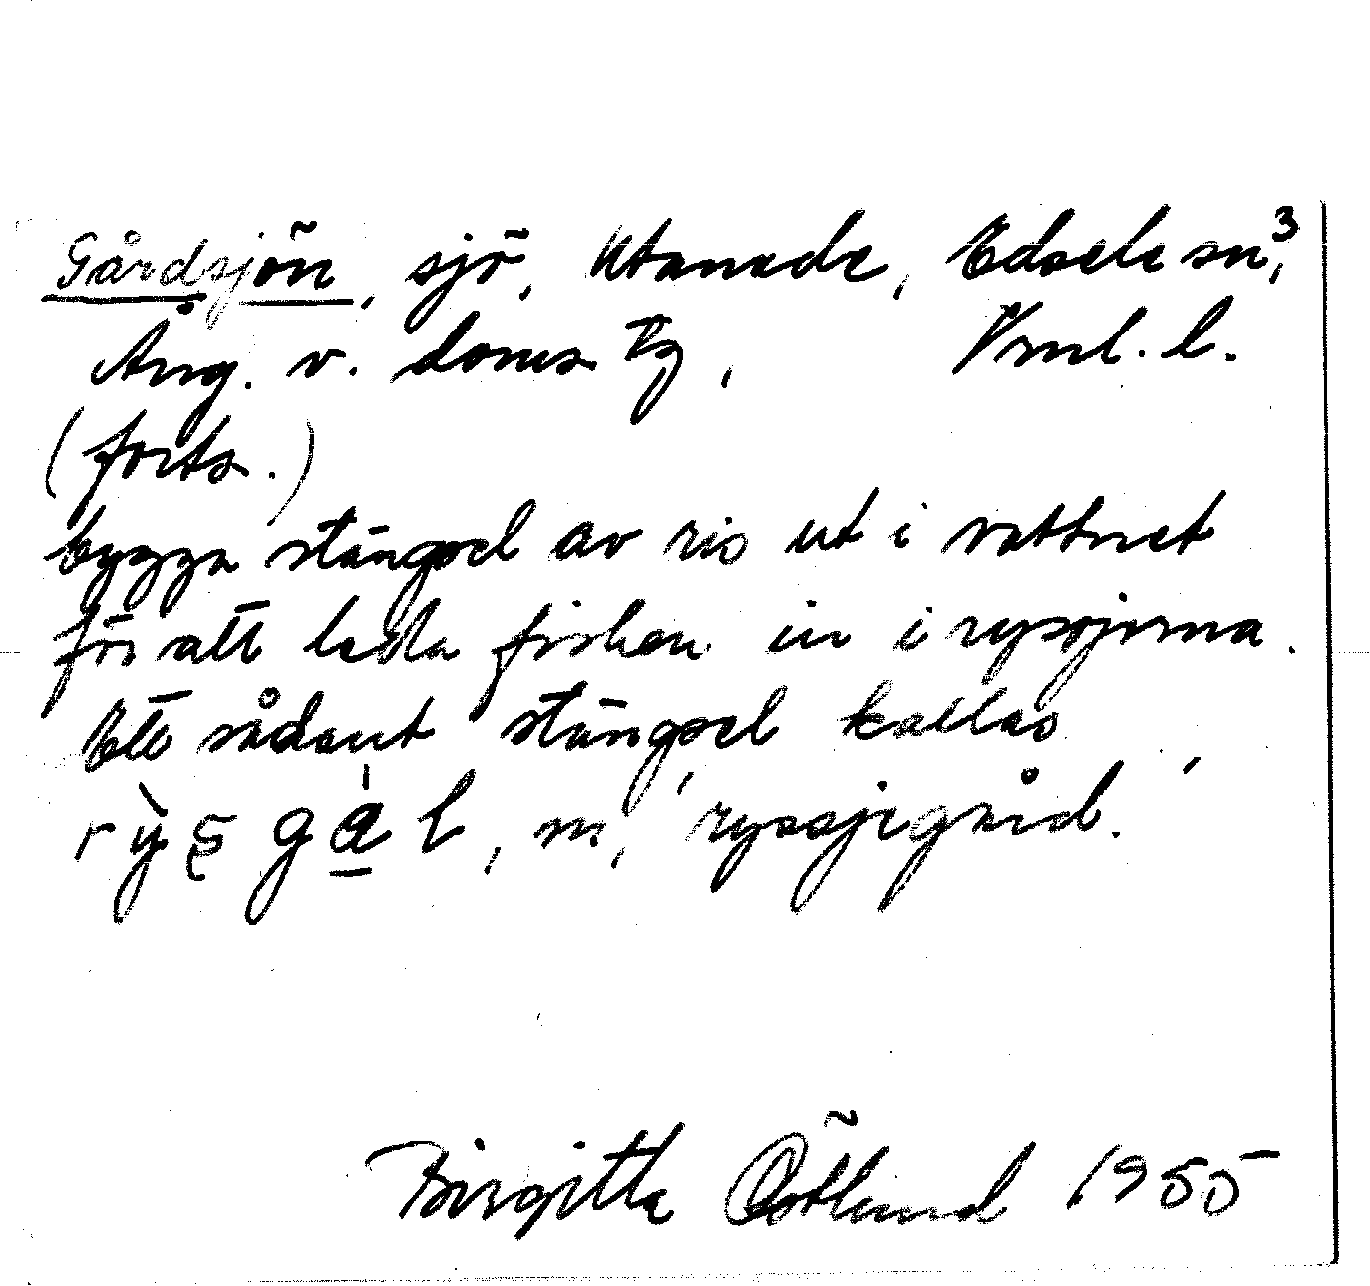 Gårdsjön, sjö, Utanede, Edsele sn,3
Ång. v. doms tg, Vml. l.
(forts.)
bygga stängsel av ris ut i vattnet
för att leda fisken in i ryssjorna.
Ett sådant stängsel kallas
, m, 'ryssjegård.'
Birgitta Östlund 1955